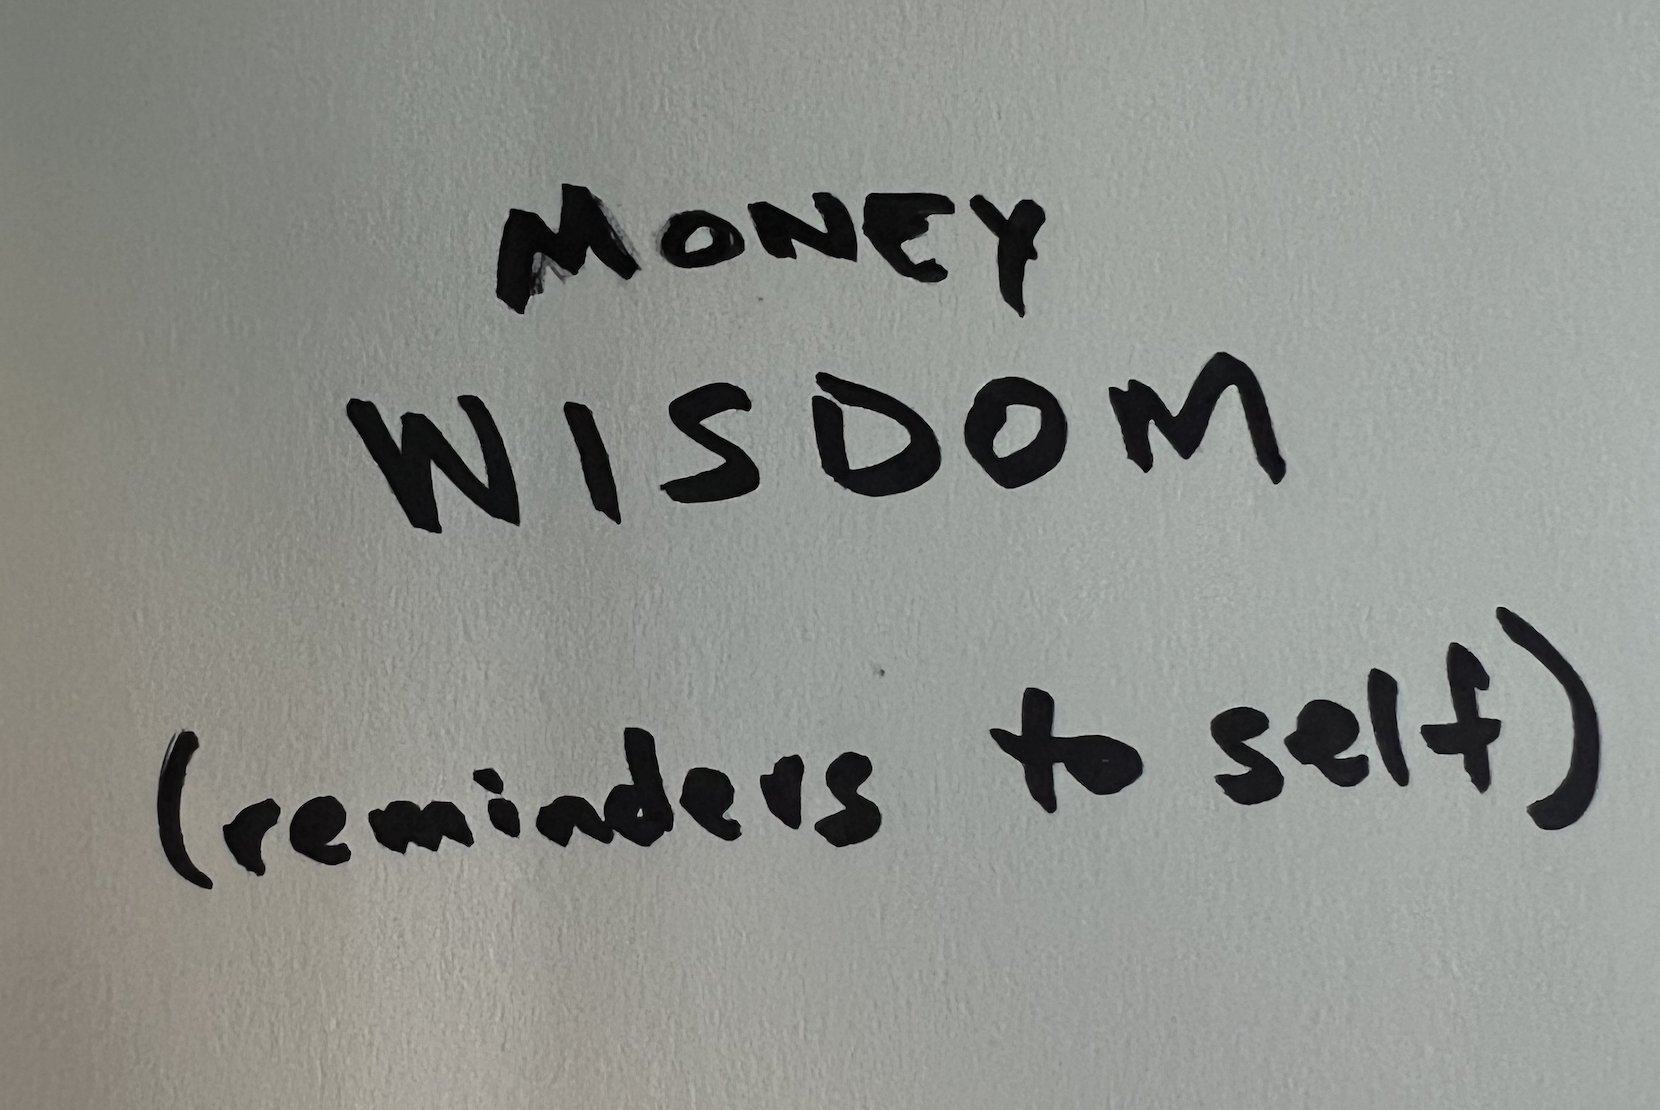 MONEY
WISDOM
(reminders to self)